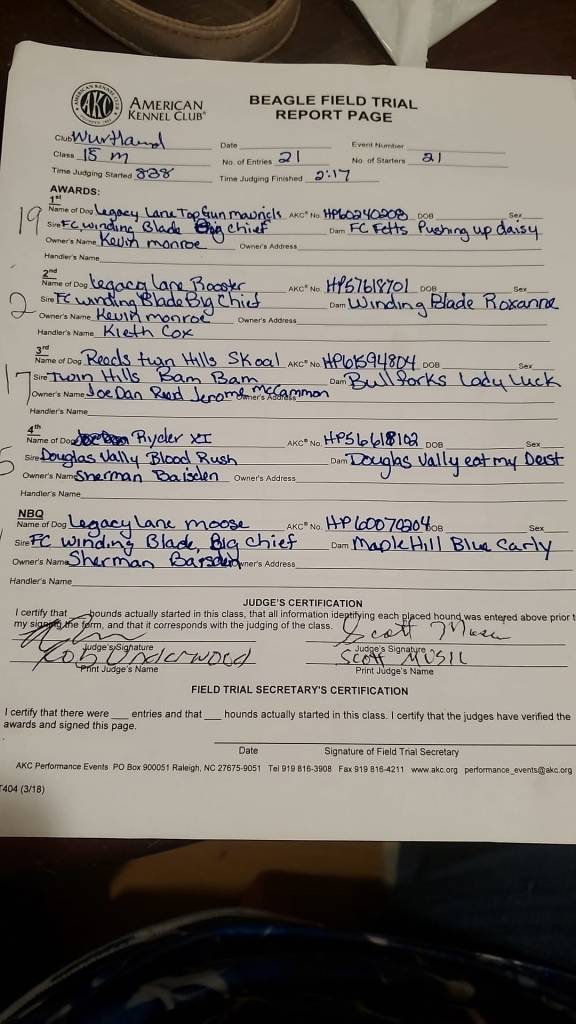 AKC
AMERICAN
KENNEL CLUB®
BEAGLE FIELD TRIAL
REPORT PAGE
Club Wurtland Date Event Number
Class 15 m No. of Entries 21 No. of Starters 21
Time Judging Started 838 Time Judging Finished 2:17
AWARDS:
1st
19 Name of Dog Legacy Lane Top Gun mavrick AKC® No. HP60240208 DOB Sex
Sire FC winding Blade Big chief Dam FC Fetts Pushing up daisy
Owner's Name Kevin monroe Owner's Address
Handler's Name
2nd
Name of Dog Legacy Lane Rooster AKC® No. HP57618701 DOB Sex
2 Sire FC winding Blade Big Chief Dam Winding Blade Roxanne
Owner's Name Kevin monroe Owner's Address
Handler's Name Kieth Cox
3rd
Name of Dog Reeds twin Hills Skoal AKC® No. HP61594804 DOB Sex
17 Sire Twin Hills Bam Bam Dam Bull forks Lady Luck
Owner's Name Joe Dan Reed Jerome McCammon Owner's Address
Handler's Name
4th
Name of Dog Ryder XI AKC® No. HP56618102 DOB Sex
5 Sire Douglas Vally Blood Rush Dam Douglas Vally eat my Dust
Owner's Name Sherman Baisden Owner's Address
Handler's Name
NBQ
Name of Dog Legacy Lane moose AKC® No. HP60070204 DOB Sex
Sire FC winding Blade, Big chief Dam Maple Hill Blue Carly
Owner's Name Sherman Owner's Address
Handler's Name
JUDGE'S CERTIFICATION
I certify that hounds actually started in this class, that all information identifying each placed hound was entered above prior t
my signing the form, and that it corresponds with the judging of the class.
Scott Music
Judge's Signature Judge's Signature
Rob Underwood Scott MUSIC
Print Judge's Name Print Judge's Name
FIELD TRIAL SECRETARY'S CERTIFICATION
I certify that there were ___ entries and that ___ hounds actually started in this class. I certify that the judges have verified the
awards and signed this page.
Date Signature of Field Trial Secretary
AKC Performance Events PO Box 900051 Raleigh, NC 27675-9051 Tel 919 816-3908 Fax 919 816-4211 www.akc.org performance_events@akc.org
T404 (3/18)